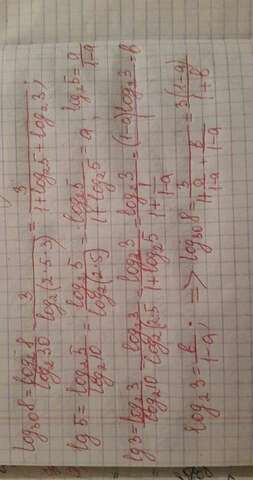 log₃₀8 = log₂8/log₂30 = 3/log₂(2·5·3) = 3/(1+log₂5+log₂3);
lg5 = log₂5/log₂10 = log₂5/log₂(2·5) = log₂5/(1+log₂5) = a; log₂5 = a/(1-a)
lg3 = log₂3/log₂10 = log₂3/log₂(2·5 = log₂3/(1+log₂5 = log₂3/(1+1/(1-a) = (1-a)log₂3 = b
log₂3 = b/(1-a); => log₃₀8 = 3/(1+a/(1-a)+b/(1-a)) = 3(1-a)/(1+b)